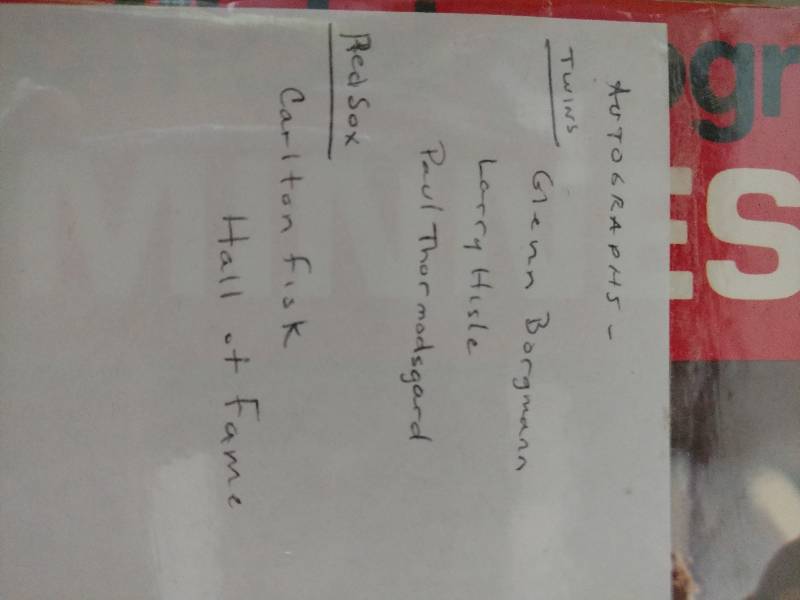 AUTOGRAPHS -
TWINS
Glenn Borgmann
Larry Hisle
Paul Thormodsgard
Red Sox
Carlton Fisk
Hall of Fame
ogr
MINNES